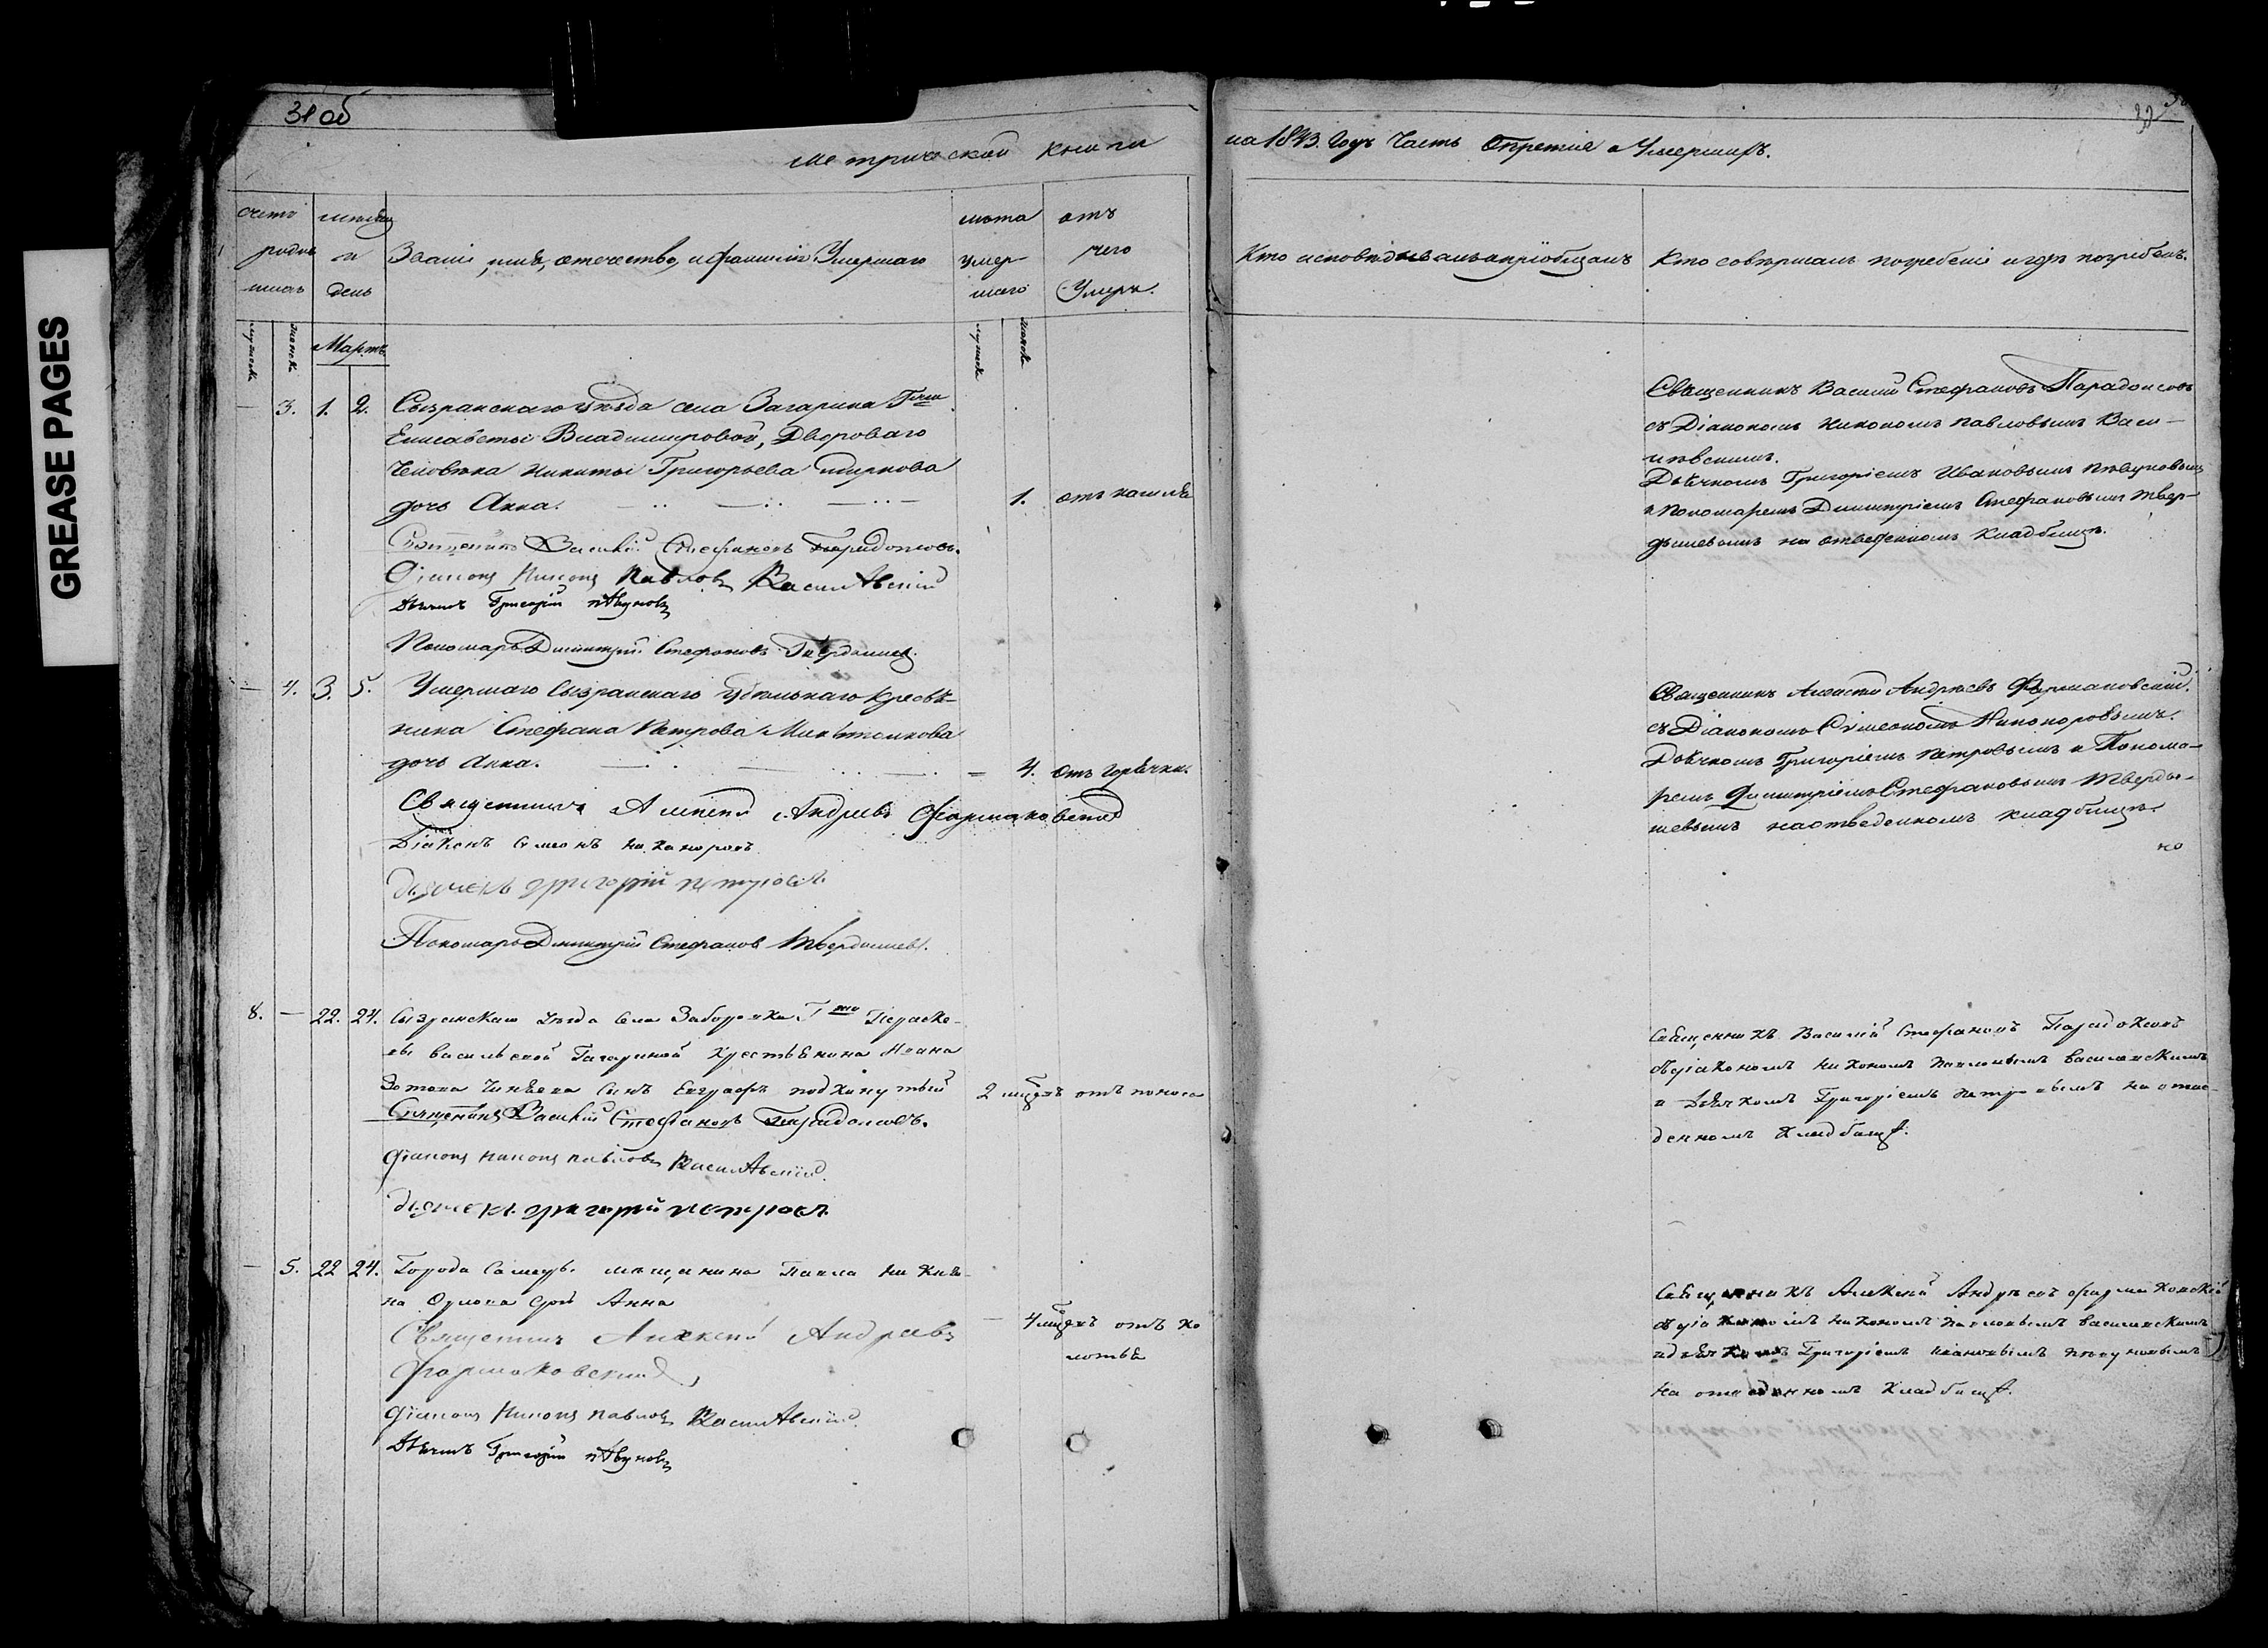 GREASE PAGES
31 об
32
Метрической книги
на 1843. Годъ Часть третія о Умершихъ.
счетъ
умершихъ
мужеска
женска
месяцъ
и
день
Званіе, имя, отечество, и фамилія Умершаго
лета
умер
шаго
мужеска
женска
отъ
чего
Умеръ.
Кто исповедывалъ и пріобщалъ
Кто совершалъ погребеніе и где погребенъ.
Мартъ
— 3. 1. 2. Сызранскаго уезда села Загарина Гжи
Елисаветы Владимировой, Двороваго
Человека Никиты Григорьева
дочь Анна. 1. отъ кашля
Священникъ Василій Стефановъ Парадоксовъ.
Діаконъ Никонъ Павловъ Василевскій
Дьячекъ Григорій Певуновъ
Пономарь Димитрій Стефановъ Твердышев.
Священникъ Василій Стефановъ Парадоксовъ
съ Діакономъ Никономъ Павловымъ Васи-
левскимъ.
Дьячкомъ Григоріемъ Ивановымъ Певуновымъ
и Пономаремъ Димитріемъ Стефановымъ Твер-
дышевымъ на отведенномъ кладбище.
— 4. 3. 5. Умершаго Сызранскаго удельнаго крестья-
нина Стефана Петрова
дочь Анна. — 4. отъ горячки.
Священникъ Алексей Андреевъ Фармаковский
Діаконъ Симеонъ Никаноровъ
дьячекъ григорій петровъ.
Пономарь Димитрій Стефановъ Твердышев.
Священникъ Алексей Андреевъ Фармаковскій.
съ Діакономъ Симеономъ Никаноровымъ.
Дьячкомъ Григоріемъ Петровымъ и Понома-
ремъ Димитріемъ Стефановымъ Тверды-
шевымъ на отведенномъ кладбище.
но
8. — 22. 24. Сызранскаго уезда села Заборовки Гжи Параско-
вьи Васильевой Гагариной крестьянина Ивана
Зотова сынъ Евграфъ подкинутый 2 месяцъ отъ поноса
Священникъ Василій Стефановъ Парадоксовъ.
Діаконъ Никонъ Павловъ Василевскій.
дьячекъ григорій петровъ
Священникъ Василій Стефановъ Парадоксовъ
съ діакономъ Никономъ Павловымъ Василевскимъ
и дьячкомъ Григоріемъ Петровымъ на отве-
денномъ кладбище.
— 5. 22 24. Города Самары. мещанина Павла Ники-
на Орлова дочь Анна — 4 месяцъ отъ ко
лотья
Священникъ Алексей Андреевъ
Фармаковский
Діаконъ Никонъ Павловъ Василевскій.
Дьячекъ Григорій Певуновъ
Священникъ Алексей Андреевъ Фармаковскій
съ діакономъ Никономъ Павловымъ Василевскимъ
и дьячкомъ Григоріемъ Ивановымъ Певуновымъ
на отведенномъ кладбище.